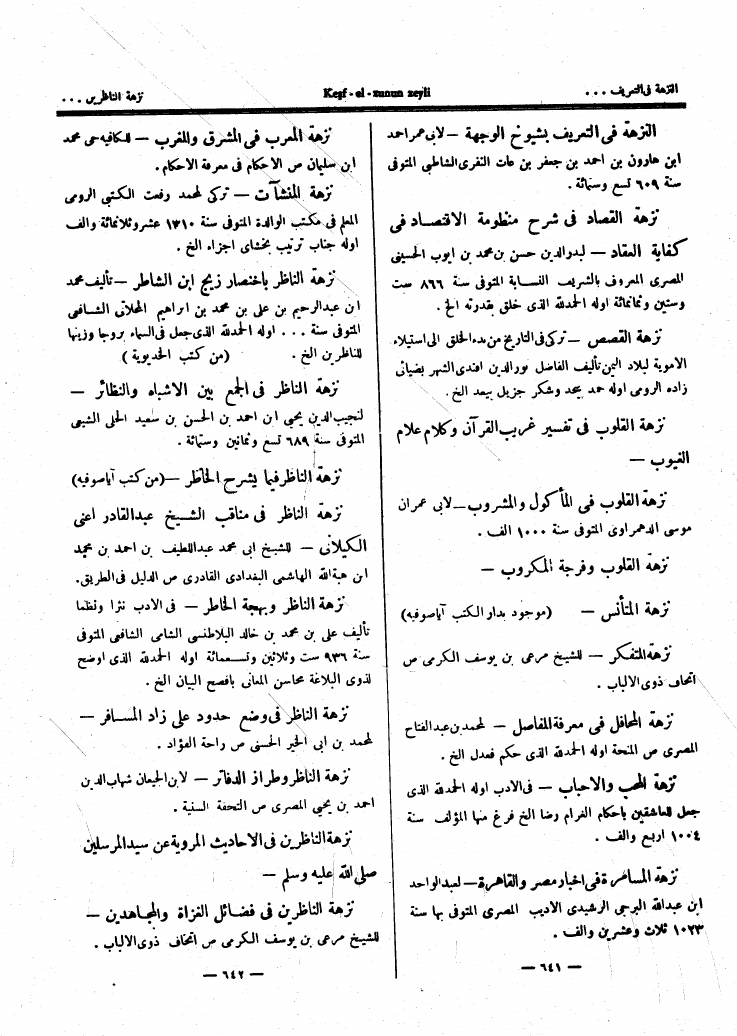 النزهة فى التعريف ...
Keşf - el - zunun zeyli
نزهة الناظرين ...
النزهة فى التعريف بشيوخ الوجهة — لابى عمر احمد
ابن هارون بن احمد بن جعفر بن عات النفرى الشاطبى المتوفى
سنة ٦٠٩ تسع وستمائة .
نزهة القصاد فى شرح منظومة الاقتصاد فى
كفاية العقاد — لبدرالدين حسن بن محمد بن ايوب الحسينى
المصرى المعروف بالشريف النسابة المتوفى سنة ٨٦٦ ست
وستين وثمانمائة اوله الحمدلله الذى خلق بقدرته الخ .
نزهة القصص — تركى فى التاريخ من بدء الخلق الى استيلاء
الاموية لبلاد اليمن تأليف الفاضل نورالدين افندى الشهر بضيائى
زاده الرومى اوله حمد بيحد وشكر جزيل بيعد الخ .
نزهة القلوب فى تفسير غريب القرآن وكلام علام
الغيوب —
نزهة القلوب فى المأكول والمشروب — لابى عمران
موسى الدهمراوى المتوفى سنة ١٠٠٠ الف .
نزهة القلوب وفرجة المكروب —
نزهة المتأنس — (موجود بدار الكتب آياصوفيه)
نزهة المتفكر — للشيخ مرعى بن يوسف الكرمى ص
اتحاف ذوى الالباب .
نزهة المحافل فى معرفة المفاصل — لمحمد بن عبدالفتاح
المصرى ص المنحة اوله الحمدلله الذى حكم فعدل الخ .
نزهة المحب والاحباب — فى الادب اوله الحمدلله الذى
جعل للعاشقين باحكام الغرام رضا الخ فرغ منها المؤلف سنة
١٠٠٤ اربع والف .
نزهة المسامرة فى اخبار مصر والقاهرة — لعبدالواحد
ابن عبدالله البرجى الرشيدى الاديب المصرى المتوفى بها سنة
١٠٢٣ ثلاث وعشرين والف .
— ٦٤١ —
نزهة المعرب فى المشرق والمغرب — للكافيه جى محمد
ابن سليمان ص الاحكام فى معرفة الاحكام .
نزهة المنشآت — تركى لمحمد رفعت الكتبى الرومى
المعلم فى مكتب الوالدة المتوفى سنة ١٣١٠ عشر وثلاثمائة والف
اوله جناب ترتيب بخشاى اجزاء الخ .
نزهة الناظر باختصار زيج ابن الشاطر — تأليف محمد
ابن عبدالرحيم بن على بن محمد بن ابراهيم المحلاتى الشافعى
المتوفى سنة . . . اوله الحمدلله الذى جعل فى السماء بروجا وزينها
للناظرين الخ . (من كتب الخديوية)
نزهة الناظر فى الجمع بين الاشباه والنظائر —
لنجيب الدين يحيى ابن احمد بن الحسن بن سعيد الحلى الشيعى
المتوفى سنة ٦٨٩ تسع وثمانين وستمائة .
نزهة الناظر فيما يشرح الخاطر — (من كتب آياصوفيه)
نزهة الناظر فى مناقب الشيخ عبدالقادر اعنى
الكيلانى — للشيخ ابى محمد عبداللطيف بن احمد بن محمد
ابن هبة الله الهاشمى البغدادى القادرى ص الدليل فى الطريق .
نزهة الناظر وبهجة الخاطر — فى الادب نثرا ونظما
تأليف على بن محمد بن خالد البلاطنسى الشامى الشافعى المتوفى
سنة ٩٣٦ ست وثلاثين وتسعمائة اوله الحمدلله الذى اوضح
لذوى البلاغة محاسن المعانى بافصح البيان الخ .
نزهة الناظر فى وضع حدود على زاد المسافر —
لمحمد بن ابى الخير الحسنى ص راحة الفؤاد .
نزهة الناظر وطراز الدفاتر — لابن الجيعان شهاب الدين
احمد بن يحيى المصرى ص التحفة السنية .
نزهة الناظرين فى الاحاديث المروية عن سيد المرسلين
صلى الله عليه وسلم —
نزهة الناظرين فى فضائل الغزاة والمجاهدين —
للشيخ مرعى بن يوسف الكرمى ص اتحاف ذوى الالباب .
— ٦٤٢ —